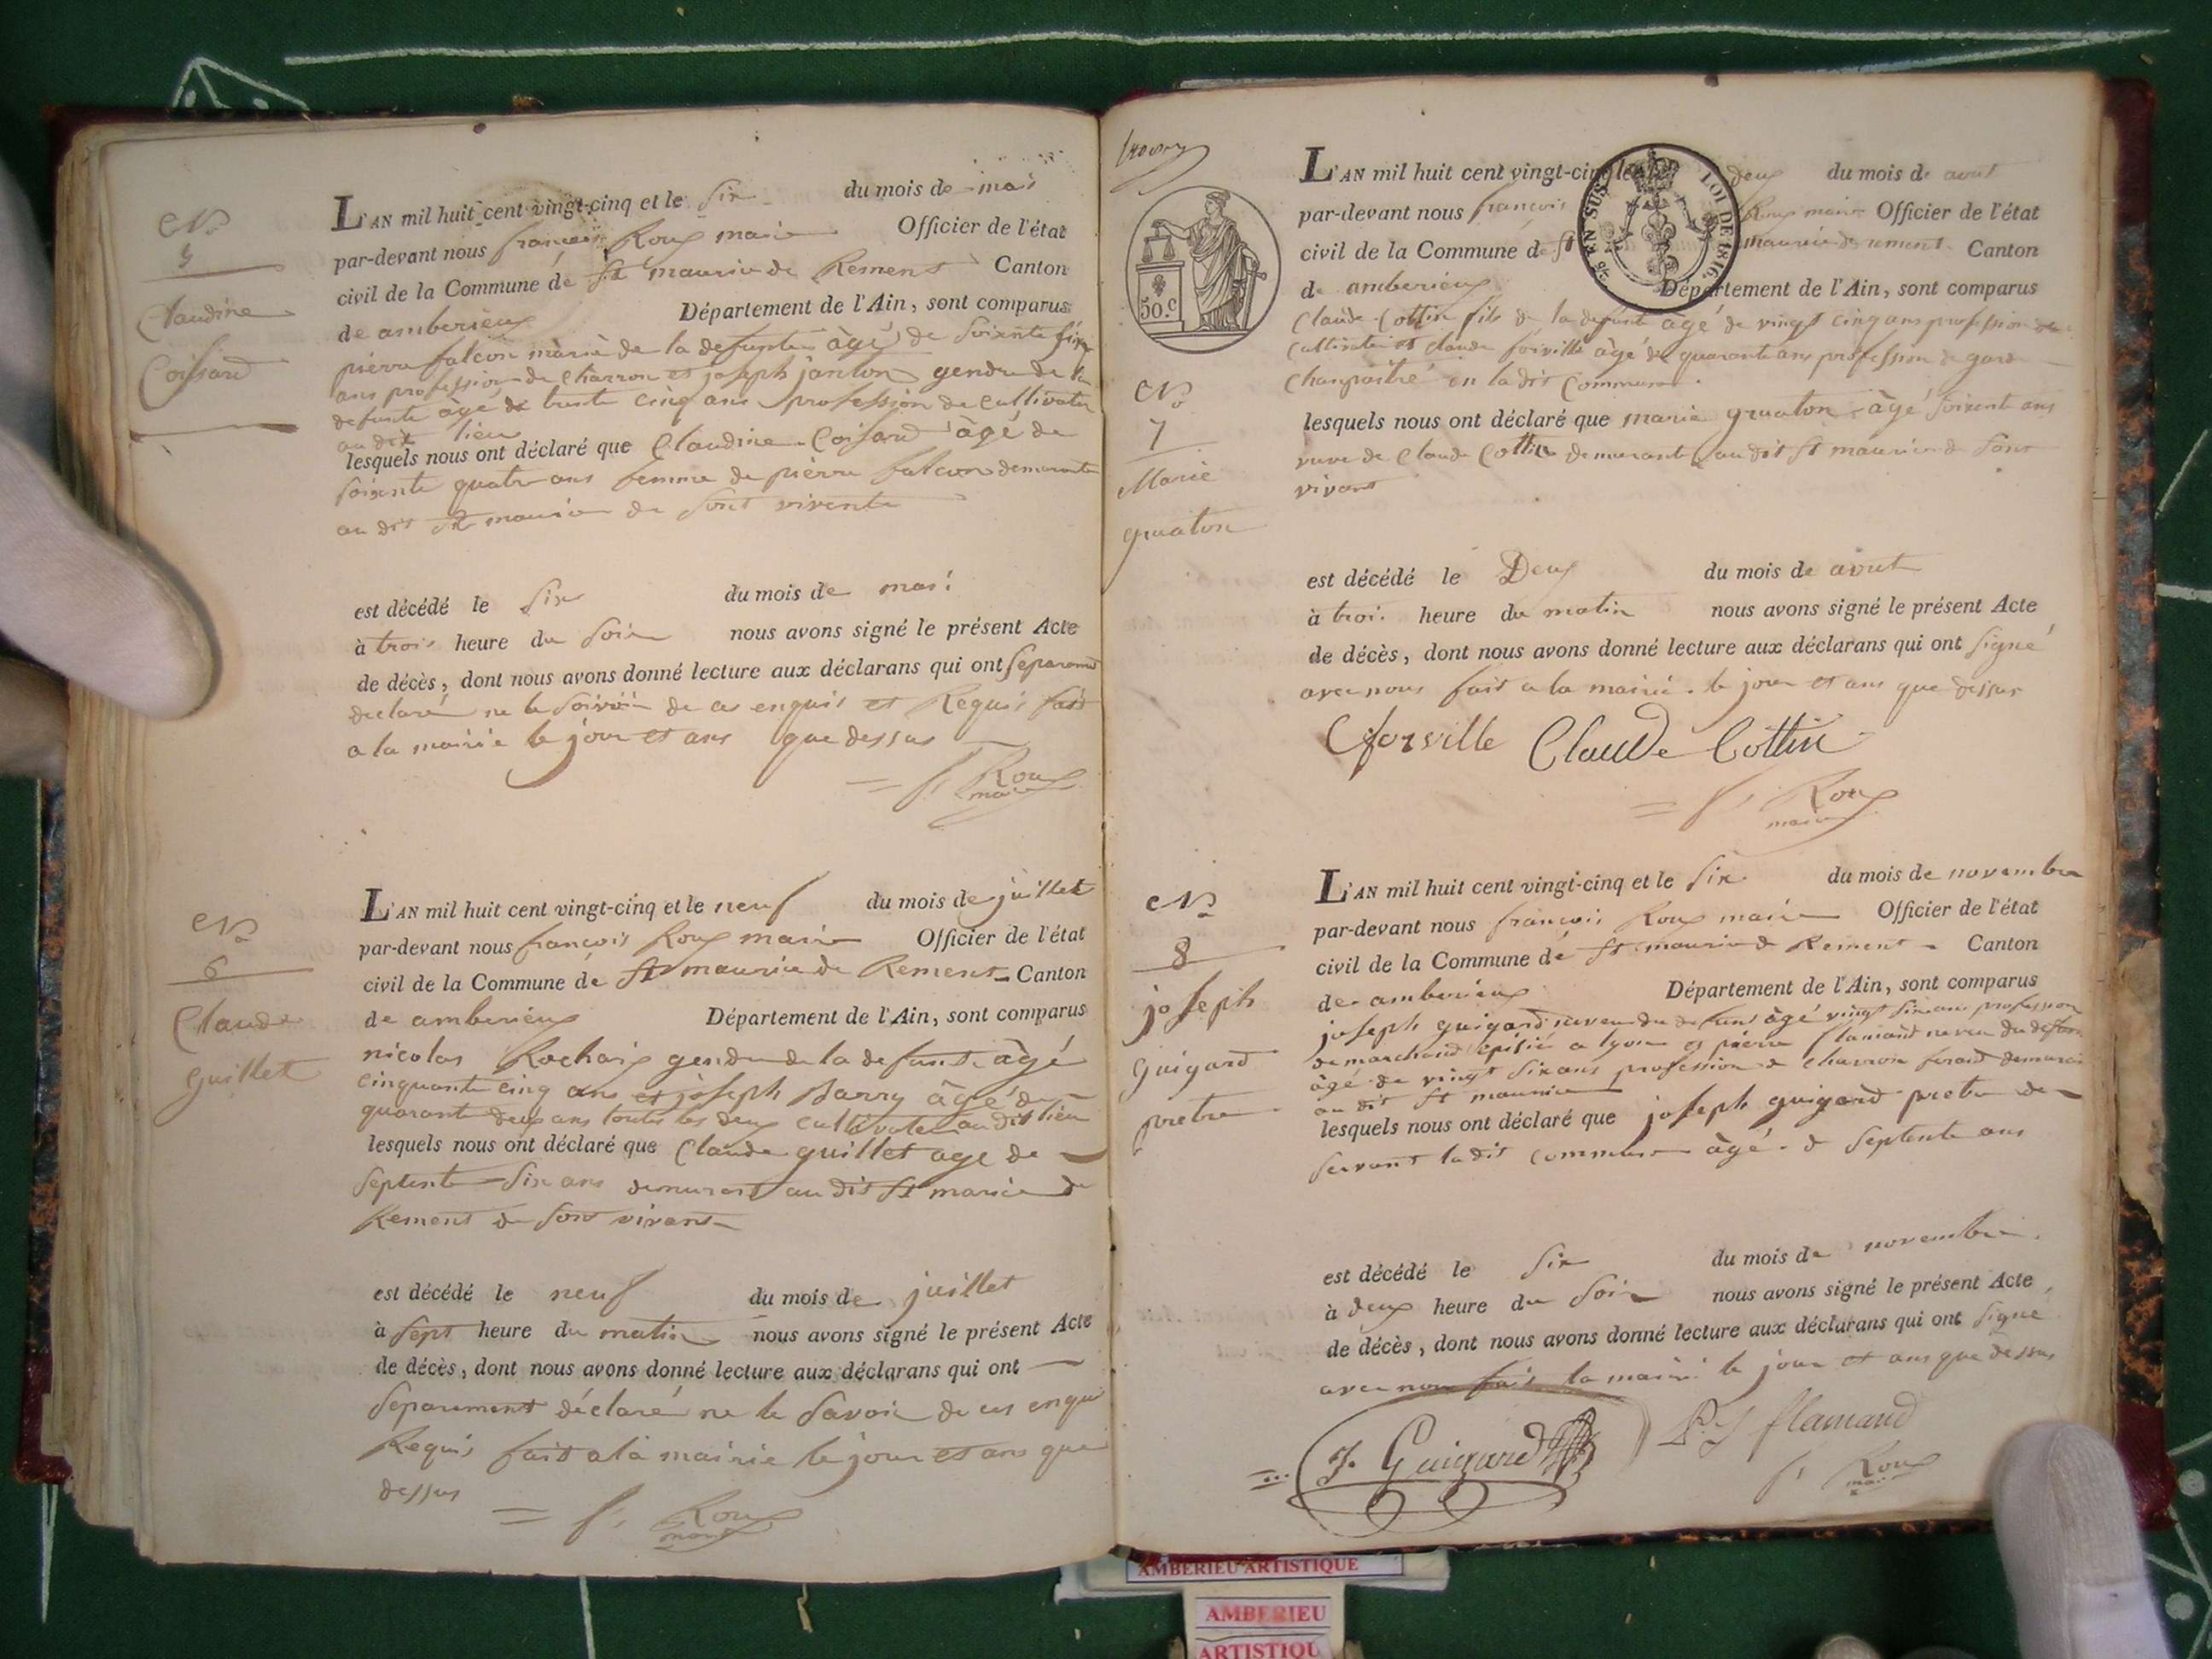 No
5
Claudine
Coissard
L'AN mil huit cent vingt-cinq et le six du mois de mai
par-devant nous françois Roux maire Officier de l'état
civil de la Commune de St maurice de Remens Canton
de amberieux Département de l'Ain, sont comparus
pierre falcon marie de la defunte âgé de soixente
ans profession de charron et joseph janton gendre de la
defunte âgé de trente cinq ans profession de cultivater
au dit lieu
lesquels nous ont déclaré que Claudine Coissard âgé de
soixente quatre ans femme de pierre falcon demurante
au dit St maurice de sont vivente
est décédé le six du mois de mai
à trois heure du soir nous avons signé le présent Acte
de décès, dont nous avons donné lecture aux déclarans qui ont separement
declaré ne le de ces enquis et Requis fait
a la mairie le jour et ans que dessus
f. Roux
maire
No
6
Claude
guillet
L'AN mil huit cent vingt-cinq et le neuf du mois de juillet
par-devant nous françois Roux maire Officier de l'état
civil de la Commune de St maurice de Remens Canton
de amberieux Département de l'Ain, sont comparus
nicolas Rochaix gendre de la defunt âgé
cinquante cinq ans et joseph Barry âgé de
quarante deux ans toutes les deux cultivater au dit lieu
lesquels nous ont déclaré que Claude guillet age de
septente six ans demurant au dit St marice de
Remens de sont vivant
est décédé le neuf du mois de juillet
à sept heure du matin nous avons signé le présent Acte
de décès, dont nous avons donné lecture aux déclarans qui ont
separement déclaré ne le savoir de ces enqui
Requis fait a la mairie le jour et ans que
dessus
f. Roux
maire
50.c
EN SUS
LOI DE 1816.
No
7
Marie
gruaton
L'AN mil huit cent vingt-cinq et le deux du mois de aout
par-devant nous françois Roux maire Officier de l'état
civil de la Commune de St maurice de remens Canton
de amberieux Département de l'Ain, sont comparus
Claude Cottin fils de la defunte âgé de vingt cinq ans profession de
cultivater et claude forville âgé de quarante ans profession de gard
champaitre en la dit Commune
lesquels nous ont déclaré que marie gruaton âgé soixent ans
veuve de Claude Cottin demurante au dit St maurice de sont
vivant
est décédé le Deux du mois de aout
à trois heure du matin nous avons signé le présent Acte
de décès, dont nous avons donné lecture aux déclarans qui ont signé
avec nous fait a la mairie le jour et ans que dessus
Cforville Claude Cottin
f. Roux
maire
No
8
joseph
guigard
pretre
L'AN mil huit cent vingt-cinq et le six du mois de novembre
par-devant nous françois Roux maire Officier de l'état
civil de la Commune de St maurice de Remens Canton
de amberieux Département de l'Ain, sont comparus
joseph guigard neveu du defunt âgé vingt six ans profession
de marchand episié a lyon et pierre flamand neveu du defunt
âgé de vingt six ans profession de charron ferand demurant
au dit St maurice
lesquels nous ont déclaré que joseph guigard pretre de
servant ladit commune âgé de septente ans
est décédé le six du mois de novembre
à deux heure du soir nous avons signé le présent Acte
de décès, dont nous avons donné lecture aux déclarans qui ont signé
avec nous fait la mairi le jour et ans que dessus
J. Guigard P. J flamand
f. Roux
maire
AMBERIEU ARTISTIQUE
AMBERIEU
ARTISTIQU